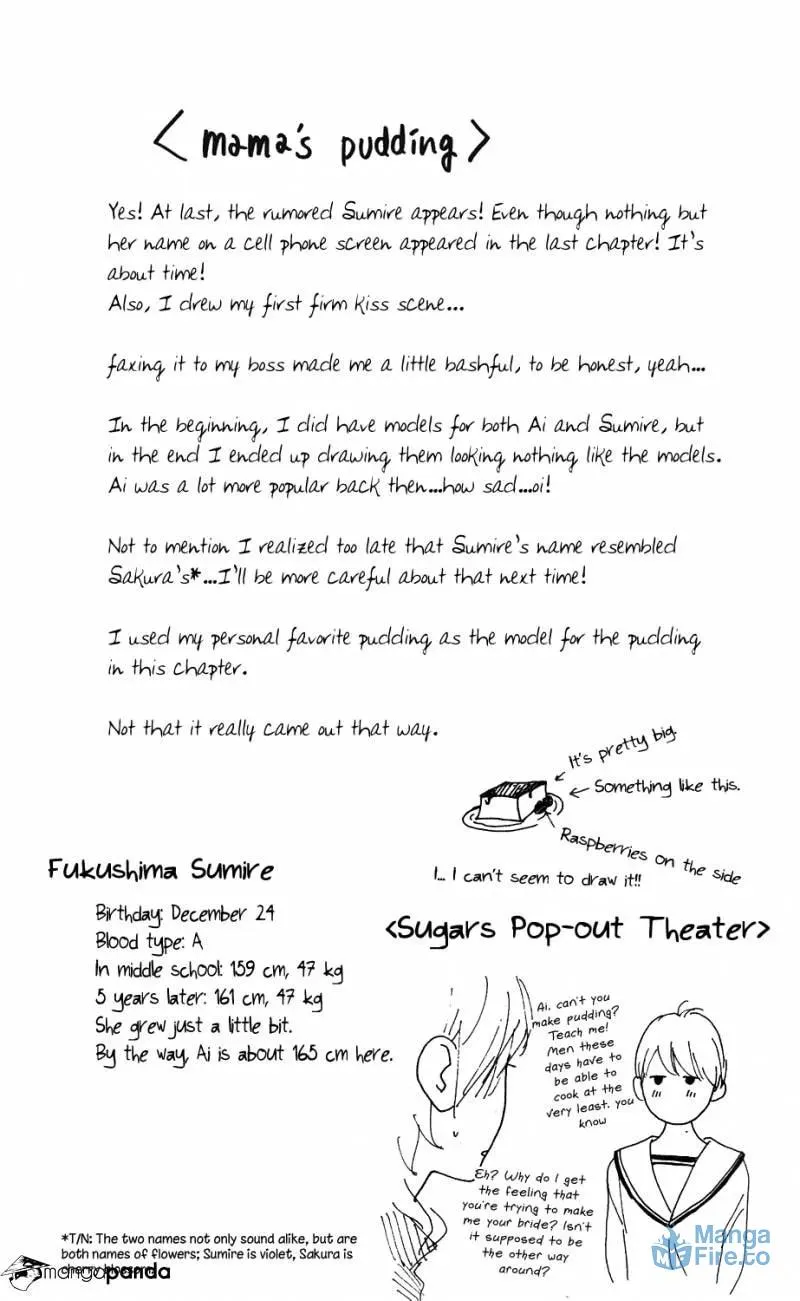 <mama's pudding>
Yes! At last, the rumored Sumire appears! Even though nothing but
her name on a cell phone screen appeared in the last chapter! It's
about time!
Also, I drew my first firm kiss scene...
faxing it to my boss made me a little bashful, to be honest, yeah...
In the beginning, I did have models for both Ai and Sumire, but
in the end I ended up drawing them looking nothing like the models.
Ai was a lot more popular back then...how sad...oi!
Not to mention I realized too late that Sumire's name resembled
Sakura's*...I'll be more careful about that next time!
I used my personal favorite pudding as the model for the pudding
in this chapter.
Not that it really came out that way.
It's pretty big.
Something like this.
Raspberries on the side
I... I can't seem to draw it!!
Fukushima Sumire
Birthday: December 24
Blood type: A
In middle school: 159 cm, 47 kg
5 years later: 161 cm, 47 kg
She grew just a little bit.
By the way, Ai is about 165 cm here.
<Sugars Pop-out Theater>
Ai, can't you
make pudding?
Teach me!
Men these
days have to
be able to
cook at the
very least, you
know
Eh? Why do I get
the feeling that
you're trying to make
me your bride? Isn't
it supposed to be
the other way
around?
*T/N: The two names not only sound alike, but are
both names of flowers; Sumire is violet, Sakura is
cherry blossom.
mangapanda
Manga
Fire.to
MF